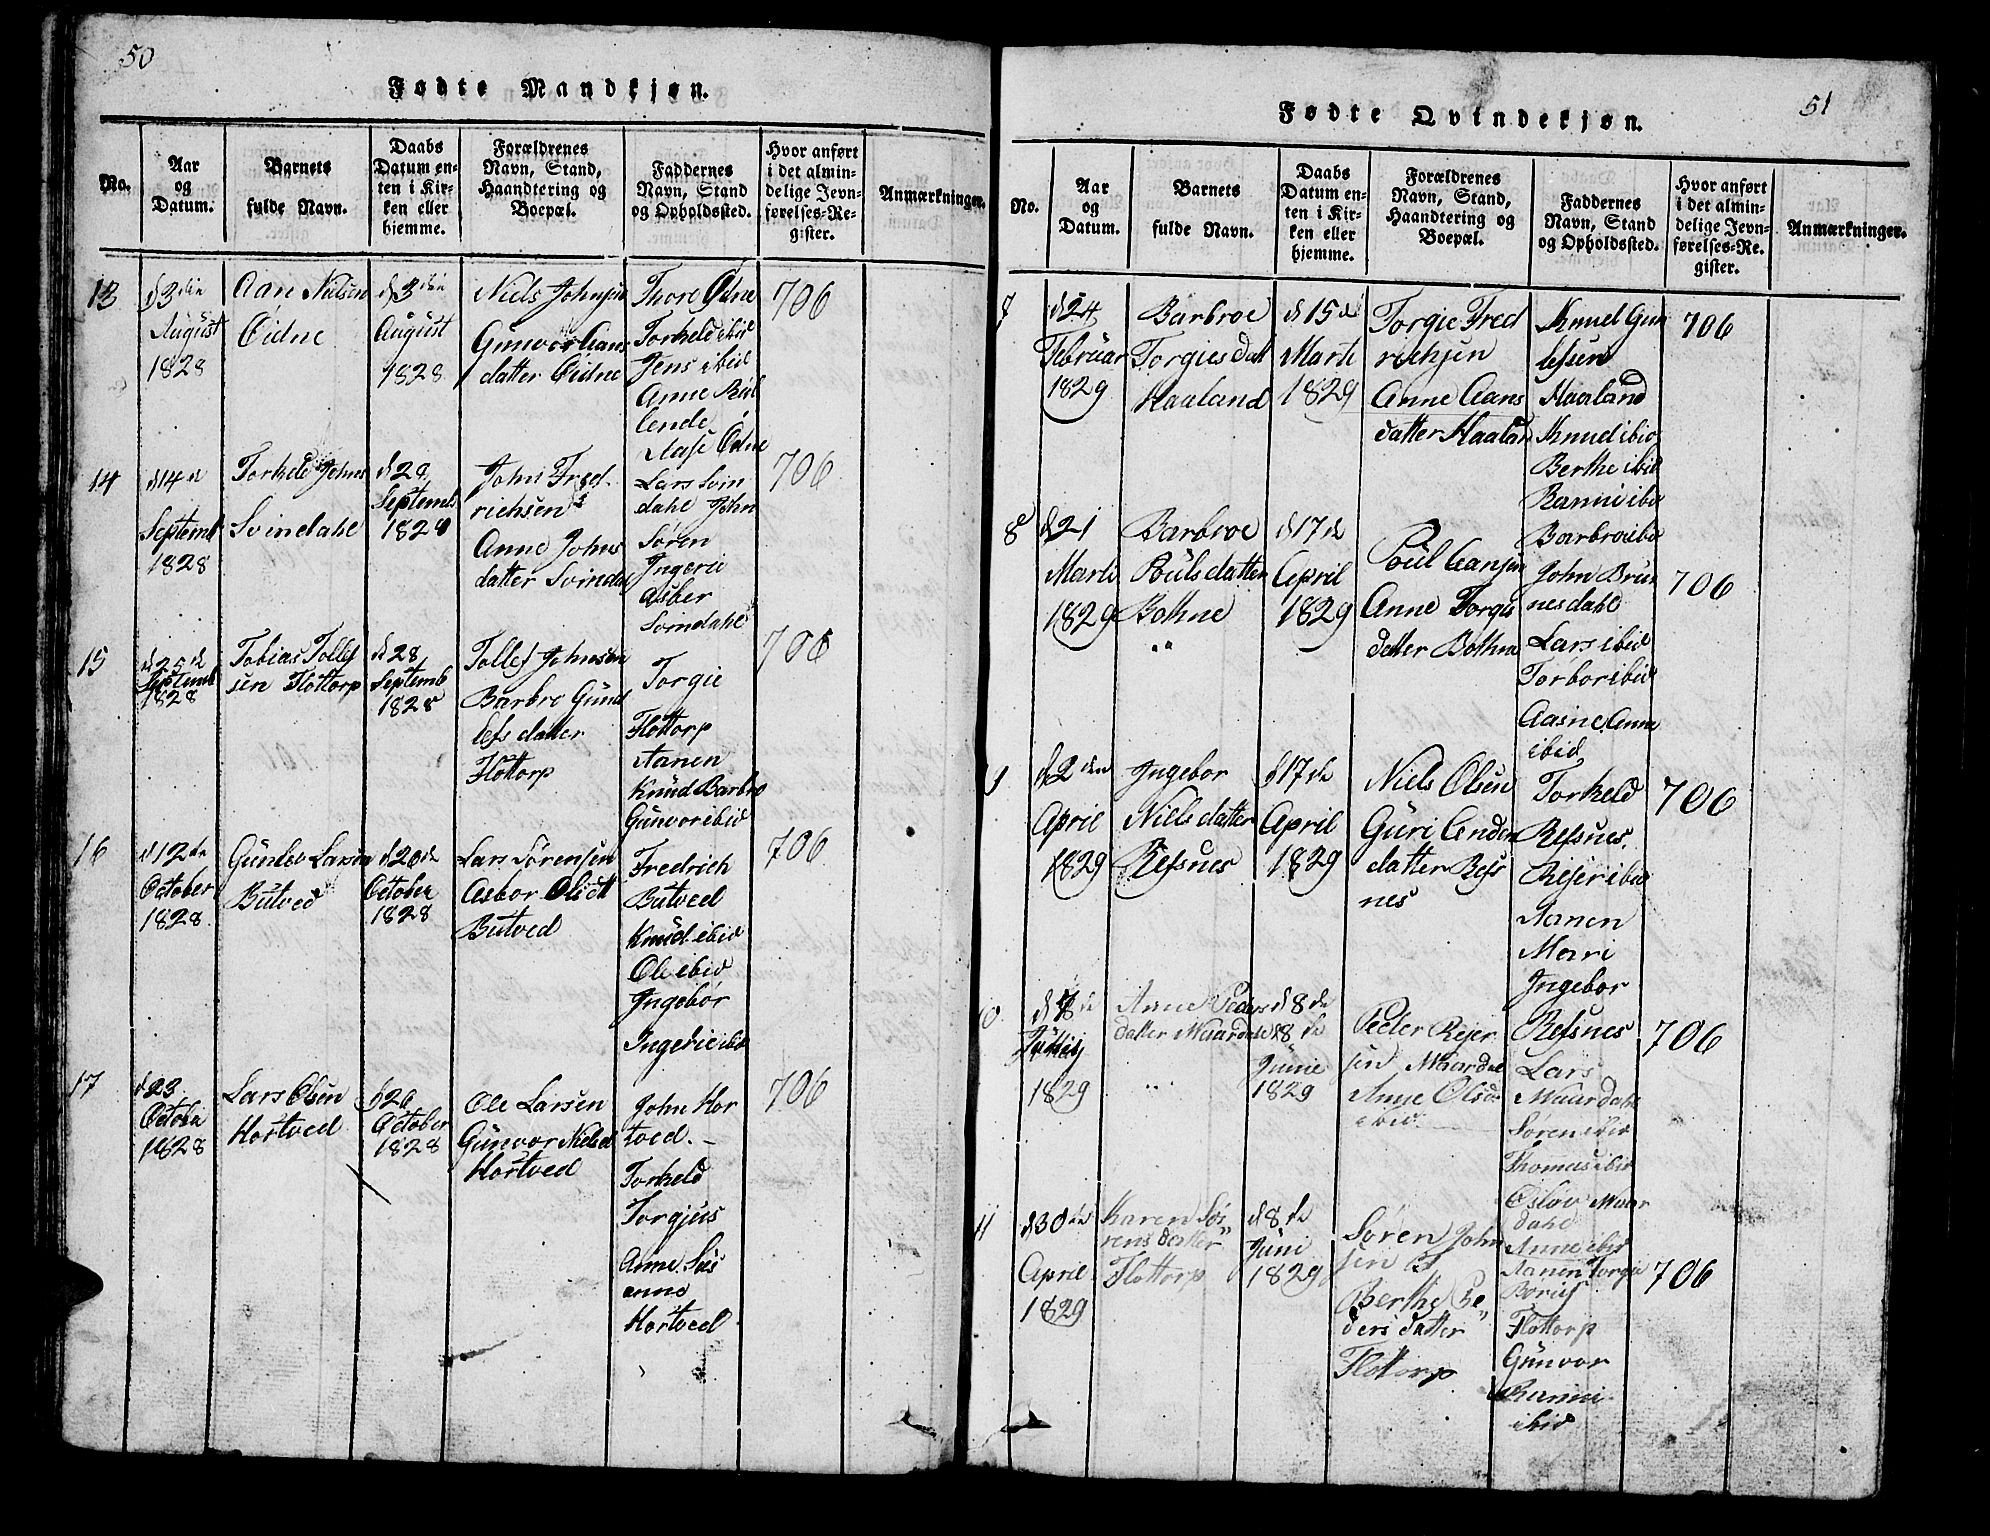 50
Fødte Mandkjøn.
No.
Aar
og
Datum.
Barnets
fulde Navn.
Daabs
Datum en-
ten i Kir-
ken eller
hjemme.
Forældrenes
Navn, Stand,
Haandtering og
Boepæl.
Faddernes
Navn, Stand
og Opholdssted.
Hvor anført
i det almin-
delige Jevn-
førelses-Re-
gister.
Anmærkninger.
13
d 3 die
August
1828
Aan Nielsen
Eidne
d 3 die
August
1828
Niels Johnsen
Gunvor Aans
datter Eidne
Thore Eidne
Torkeld ibid
Jens ibid
Anne
lende
Aase Eidne
706
14
d 14 de
Septemb
1828
Torkeld Johns
Svindahl
d 28
Septemb
1828
John Fred
richsen
Anne Johns
datter Svindal
Lars Svin
dahl John
Søren
Ingerie
Asber
Svindahl
706
15
d 25 de
Septemb
1828
Tobias Tollef
sen Flottorp
d 28
Septemb
1828
Tollef Johnsen
Barbro Gund
lefs datter
Flottorp
Torgie
Flottorp
Aanen
Knud Barbro
Gunvor ibid
706
16
d 12 de
October
1828
Gunlev Larsen
Butved
d 20 de
October
1828
Lars Sørensen
Asbor Olsdt
Butved
Fredrich
Butved
Knud ibid
Ole ibid
Ingebor
Ingerie ibid
706
17
d 23
October
1828
Lars Olsen
Hortved
d 26
October
1828
Ole Larsen
Gunvor Nielsd
Hortved
John Hor
tved.
Torkeld
Torgjus
Anne Sus
anne
Hortved
706
51
Fødte Qvindekjøn.
No.
Aar
og
Datum.
Barnets
fulde Navn.
Daabs
Datum en-
ten i Kir-
ken eller
hjemme.
Forældrenes
Navn, Stand,
Haandtering og
Boepæl.
Faddernes
Navn, Stand
og Opholdssted.
Hvor anført
i det almin-
delige Jevn-
førelses-Re-
gister.
Anmærkninger.
7
d 24
Februar
1829
Barbroe
Torgies datt
Haaland
d 15 d
Marti
1829
Torgie Fred
richsen
Anne Aans
datter Haaland
Knud Gun
lefsen
Haaland
Knud ibid
Berthe ibid
Ranni ibid
Barbroe ibid
706
8
d 21
Marti
1829
Barbroe
Pouls datter
Bothne
d 17 de
April
1829
Poul Aansen
Anne Torgis
datter Bothne
John Brun
nesdahl
Lars ibid
Torbor ibid
Aasine Anne
ibid
706
9
d 2 den
April
1829
Ingebor
Niels datter
Refsnes
d 17 de
April
1829
Niels Olsen
Guri Anders
datter Refs
nes
Torkeld
Refsnes.
Rejer ibid
Aanen
Mari
Ingebor
Refsnes
706
10
1829
Anne Peders
datter Maardal
d 8 de
Junie
1829
Peder Rejer
sen Maardal
Anne Olsd
ibid
Lars
Maardahl
Søren ibid
Thomas ibid
Oslov Maar
dahl
Anne ibid
706
11
d 30 de
April
1829
Karen Sø
rens datter
Flottorp
d 8 de
Juni
1829
Søren John
sen
Berthe Pe
ders datter
Flottorp
Aanen Torgie
Flottorp
Gunvor
Ranni
ibid
706